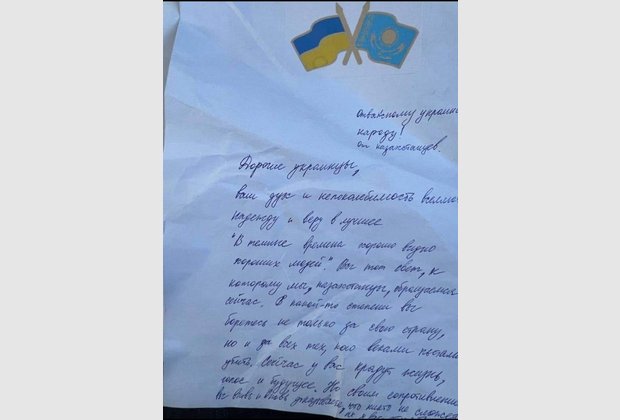 Отважному украин
народу!
От казахстанцев
Дорогие украинцы,
ваш дух и непоколебимость вселяют
надежду и веру в лучшее
"В темные времена хорошо видно
хороших людей." Вы тот свет, к
которому мы, казахстанцы, обращаемся
сейчас. В какой-то степени вы
боретесь не только за свою страну,
но и за всех тех, кого веками пытали
убить. Сейчас у вас крадут жизнь,
голос и будущее. Но своим сопротивлени
Вы вновь и вновь доказываете, что никто не сможе